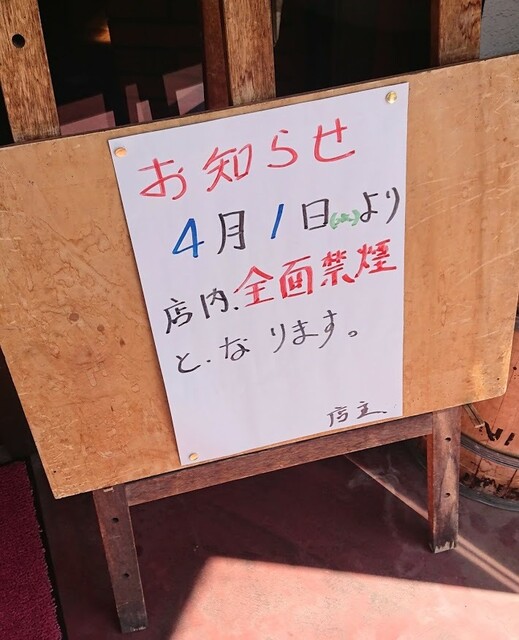 お知らせ
4月1日(水)より
店内、全面禁煙
と、なります。
店主